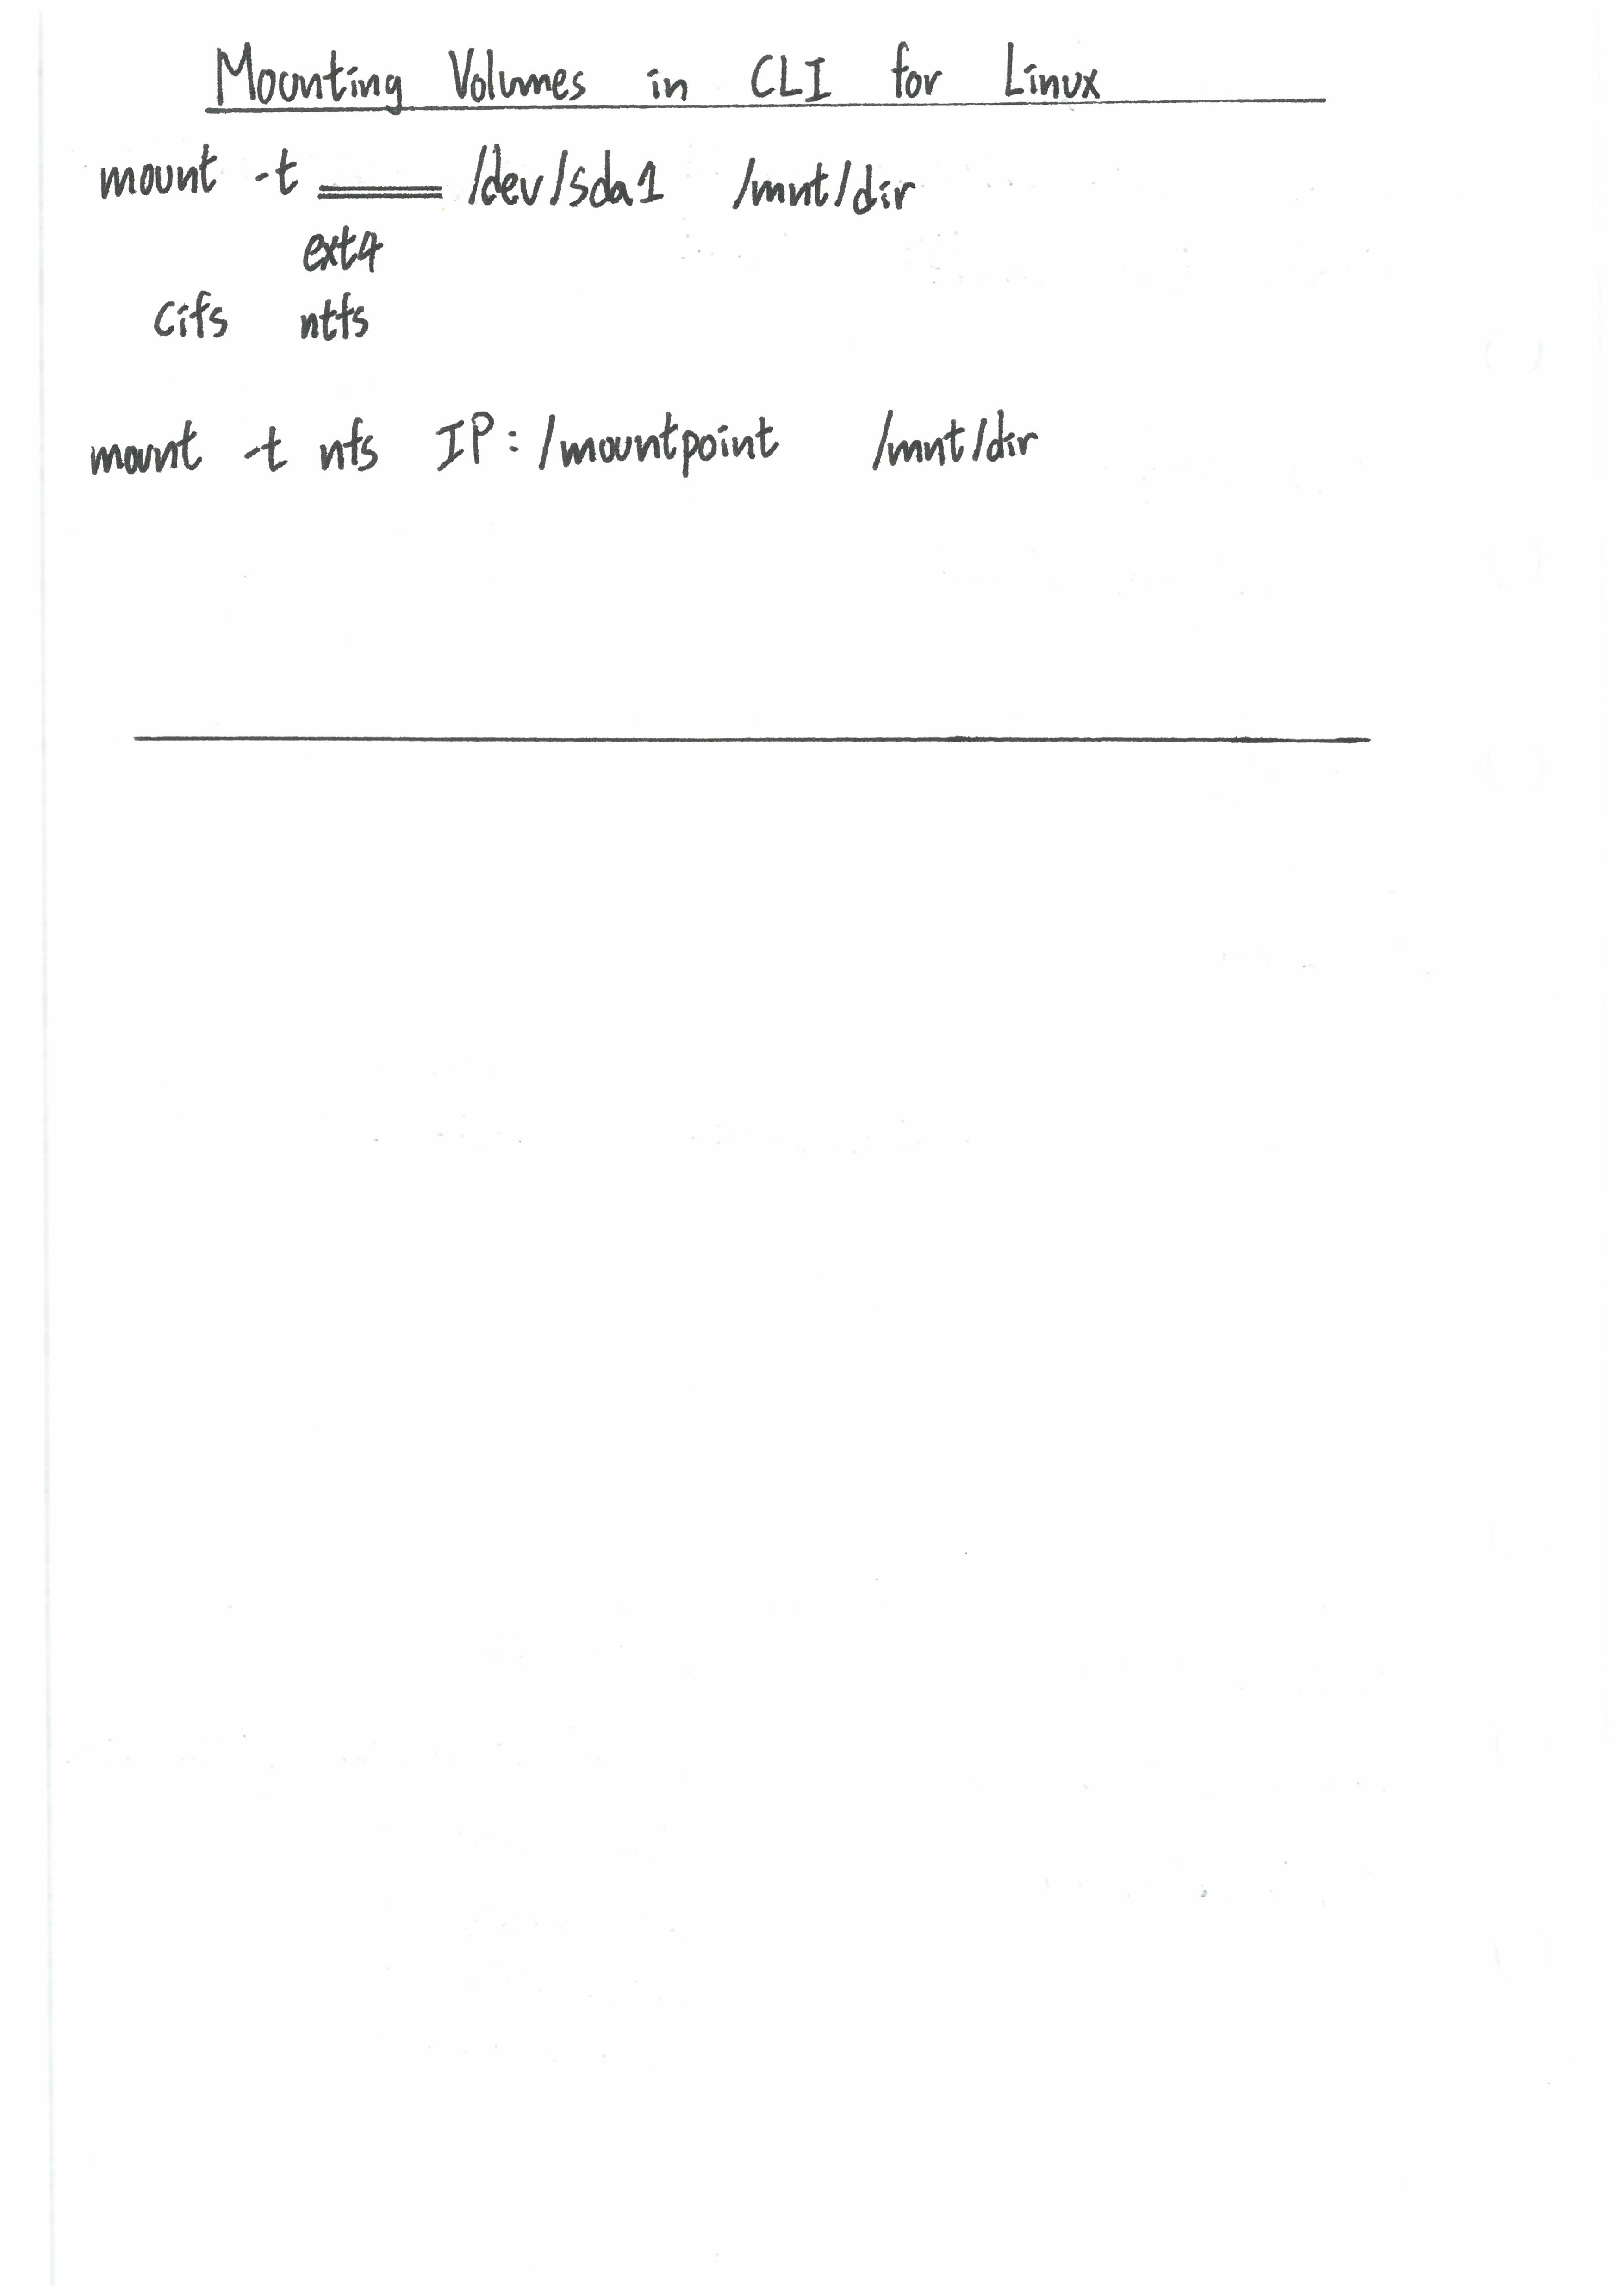 Mounting Volumes in CLI for Linux
mount -t ____ /dev/sda1 /mnt/dir
ext4
cifs ntfs
mount -t nfs IP:/mountpoint /mnt/dir